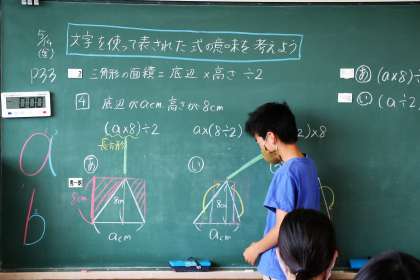 5/14
(金)
文字を使って表された式の意味を考えよう
P33
3 三角形の面積=底辺×高さ÷2
0:00
4 底辺がacm 高さが8cm
(a×8)÷2
a×(8÷2)
2)×8
長方形
あ
い
8cm
8cm
8cm
acm
acm
a
b
あ (a×8)
い (a÷2)